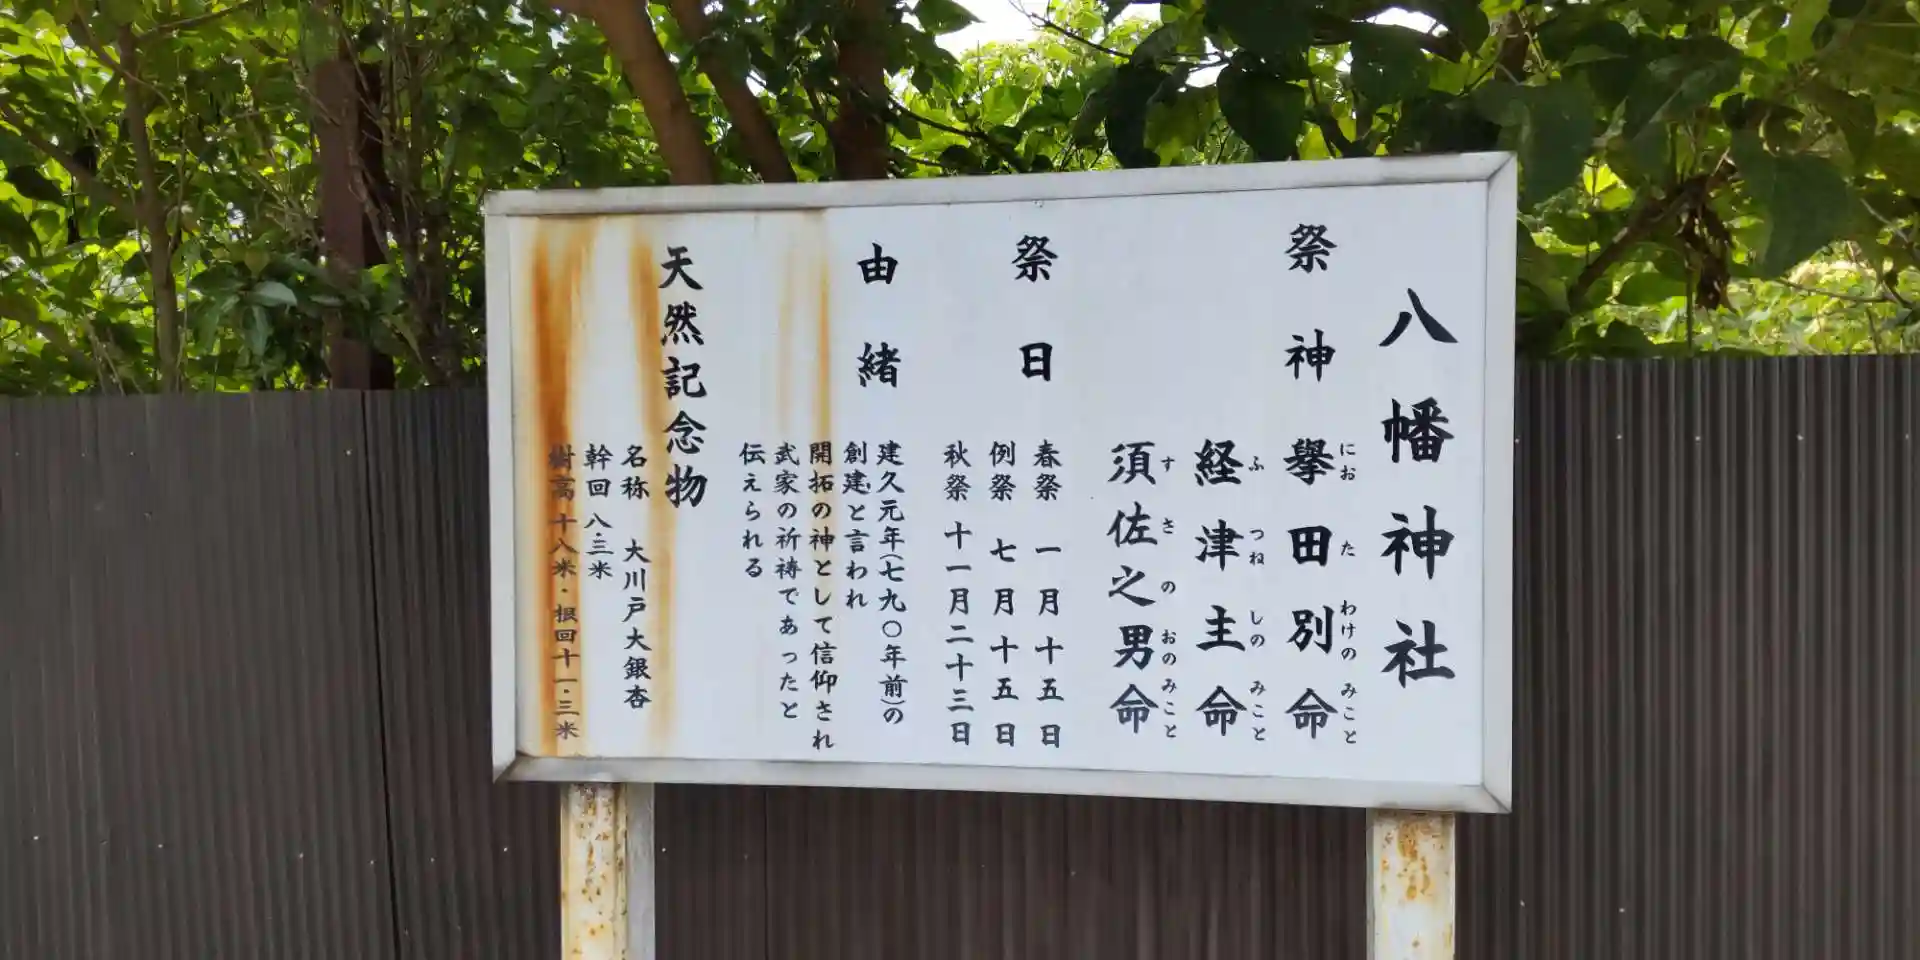 八幡神社
祭神
擧田別命
にお た わけの みこと
経津主命
ふ つね しの みこと
須佐之男命
す さ の おの みこと
祭日
春祭 一月十五日
例祭 七月十五日
秋祭 十一月二十三日
由緒
建久元年(七九〇年前)の
創建と言われ
開拓の神として信仰され
武家の祈祷であったと
伝えられる
天然記念物
名称 大川戸大銀杏
幹回 八.三米
樹高 十八米・根回十一.三米